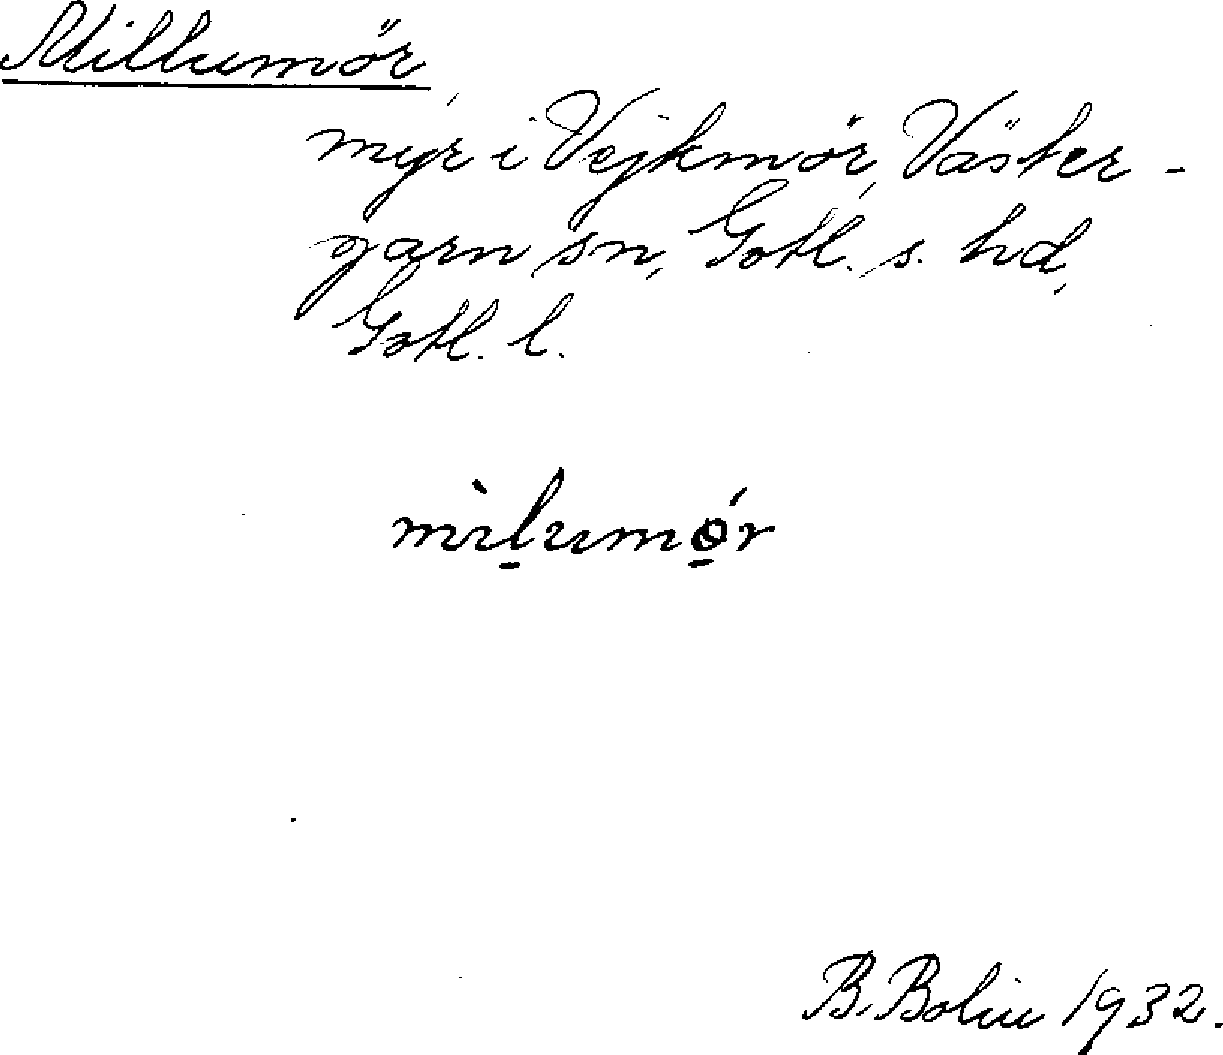 Millumör,
myr i Vejkmör, Väster-
garn sn, Gotl. s. hd,
Gotl. l.
mìl̠umó̠r
B. Bolin 1932.